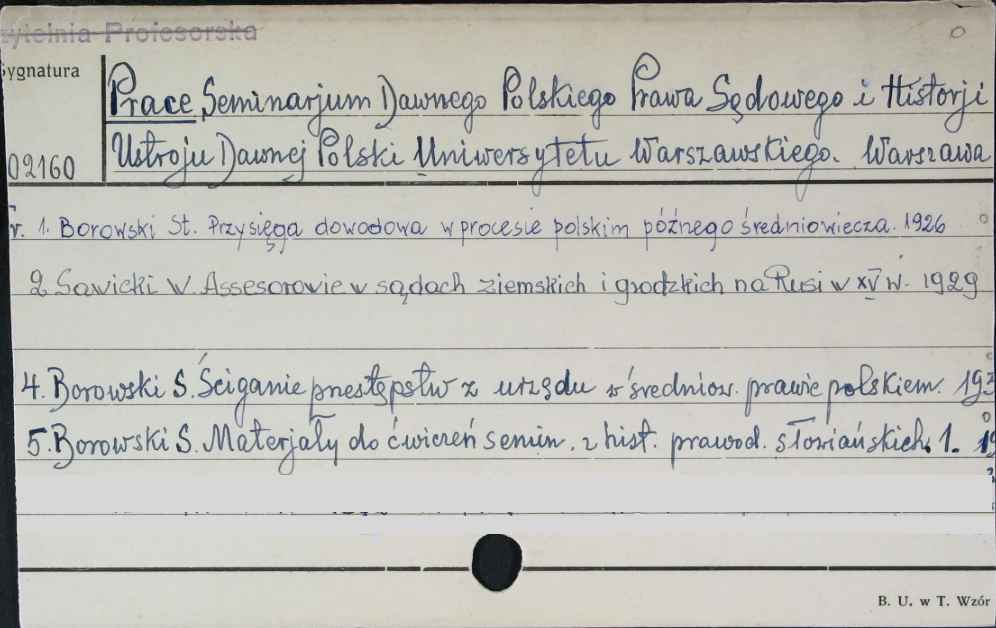 Czytelnia Profesorska
Sygnatura
Prace Seminarjum Dawnego Polskiego Prawa Sądowego i Historji
Ustroju Dawnej Polski Uniwersytetu Warszawskiego. Warszawa
02160
r. 1. Borowski St. Przysięga dowodowa w procesie polskim późnego średniowiecza. 1926
2 Sawicki W. Assesorowie w sądach ziemskich i grodzkich na Rusi w XV w. 1929
4. Borowski S. Ściganie przestępstw z urzędu w średniow. prawie polskiem. 193
5. Borowski S. Materjały do ćwiczeń semin. z hist. prawod. słowiańskich. 1. 19
B. U. w T. Wzór